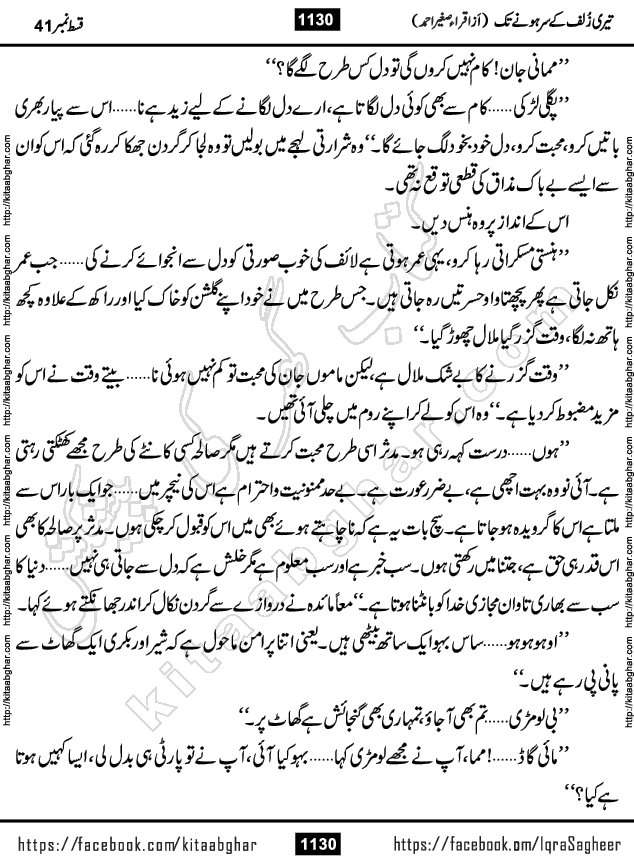 تیری زُلف کے سر ہونے تک (از اقراء صغیر احمد) 1130 قسط نمبر 41
’’ممانی جان! کام نہیں کروں گی تو دل کس طرح لگے گا؟‘‘
’’پگلی لڑکی......کام سے بھی کوئی دل لگاتا ہے، ارے دل لگانے کے لیے زید ہے نا......اس سے پیار بھری
باتیں کرو، محبت کرو، دل خود بخود لگ جائے گا۔‘‘ وہ شرارتی لہجے میں بولیں تو وہ لجا کر گردن جھکا کر رہ گئی کہ اس کو ان
سے ایسے بے باک مذاق کی قطعی توقع نہ تھی۔
اس کے انداز پر وہ ہنس دیں۔
’’ہنستی مسکراتی رہا کرو، یہی عمر ہوتی ہے لائف کی خوب صورتی کو دل سے انجوائے کرنے کی......جب عمر
نکل جاتی ہے پھر پچھتاوا و حسرتیں رہ جاتی ہیں۔ جس طرح میں نے خود اپنے گلشن کو خاک کیا اور راکھ کے علاوہ کچھ
ہاتھ نہ لگا، وقت گزر گیا ملال چھوڑ گیا۔‘‘
’’وقت گزرنے کا بے شک ملال ہے، لیکن ماموں جان کی محبت تو کم نہیں ہوئی نا......بیتے وقت نے اس کو
مزید مضبوط کر دیا ہے۔‘‘ وہ اس کو لے کر اپنے روم میں چلی آئی تھیں۔
’’ہوں......درست کہہ رہی ہو۔ مدثر اسی طرح محبت کرتے ہیں مگر صالحہ کسی کانٹے کی طرح مجھے کھٹکتی رہتی
ہے۔ آئی نو وہ بہت اچھی ہے، بے ضرر عورت ہے۔ بے حد ممنونیت و احترام ہے اس کی نیچر میں......جو ایک بار اس سے
ملتا ہے اس کا گرویدہ ہو جاتا ہے۔ سچ بات یہ ہے کہ نا چاہتے ہوئے بھی میں اس کو قبول کر چکی ہوں۔ مدثر پر صالحہ کا بھی
اس قدر ہی حق ہے، جتنا میں رکھتی ہوں۔ سب خبر ہے اور سب معلوم ہے مگر خلش ہے کہ دل سے جاتی ہی نہیں......دنیا کا
سب سے بھاری تاوان مجازی خدا کو بانٹنا ہوتا ہے۔‘‘ معاً مائدہ نے دروازے سے گردن نکال کر اندر جھانکتے ہوئے کہا۔
’’اوہو ہو ہو......ساس بہو ایک ساتھ بیٹھی ہیں۔ یعنی اتنا پر امن ماحول ہے کہ شیر اور بکری ایک گھاٹ سے
پانی پی رہے ہیں۔‘‘
’’بی لومڑی......تم بھی آ جاؤ، تمہاری بھی گنجائش ہے گھاٹ پر۔‘‘
’’مائی گاڈ......! مما، آپ نے مجھے لومڑی کہا......بہو کیا آئی، آپ نے تو پارٹی ہی بدل لی، ایسا کہیں ہوتا
ہے کیا؟‘‘
https://facebook.com/kitaabghar 1130 https://facebook.com/IqraSagheer
http://kitaabghar.com http://kitaabghar.com http://kitaabghar.com http://kitaabghar.com
http://kitaabghar.com http://kitaabghar.com http://kitaabghar.com http://kitaabghar.com
کتاب گھر کی پیشکش
kitaabghar.com